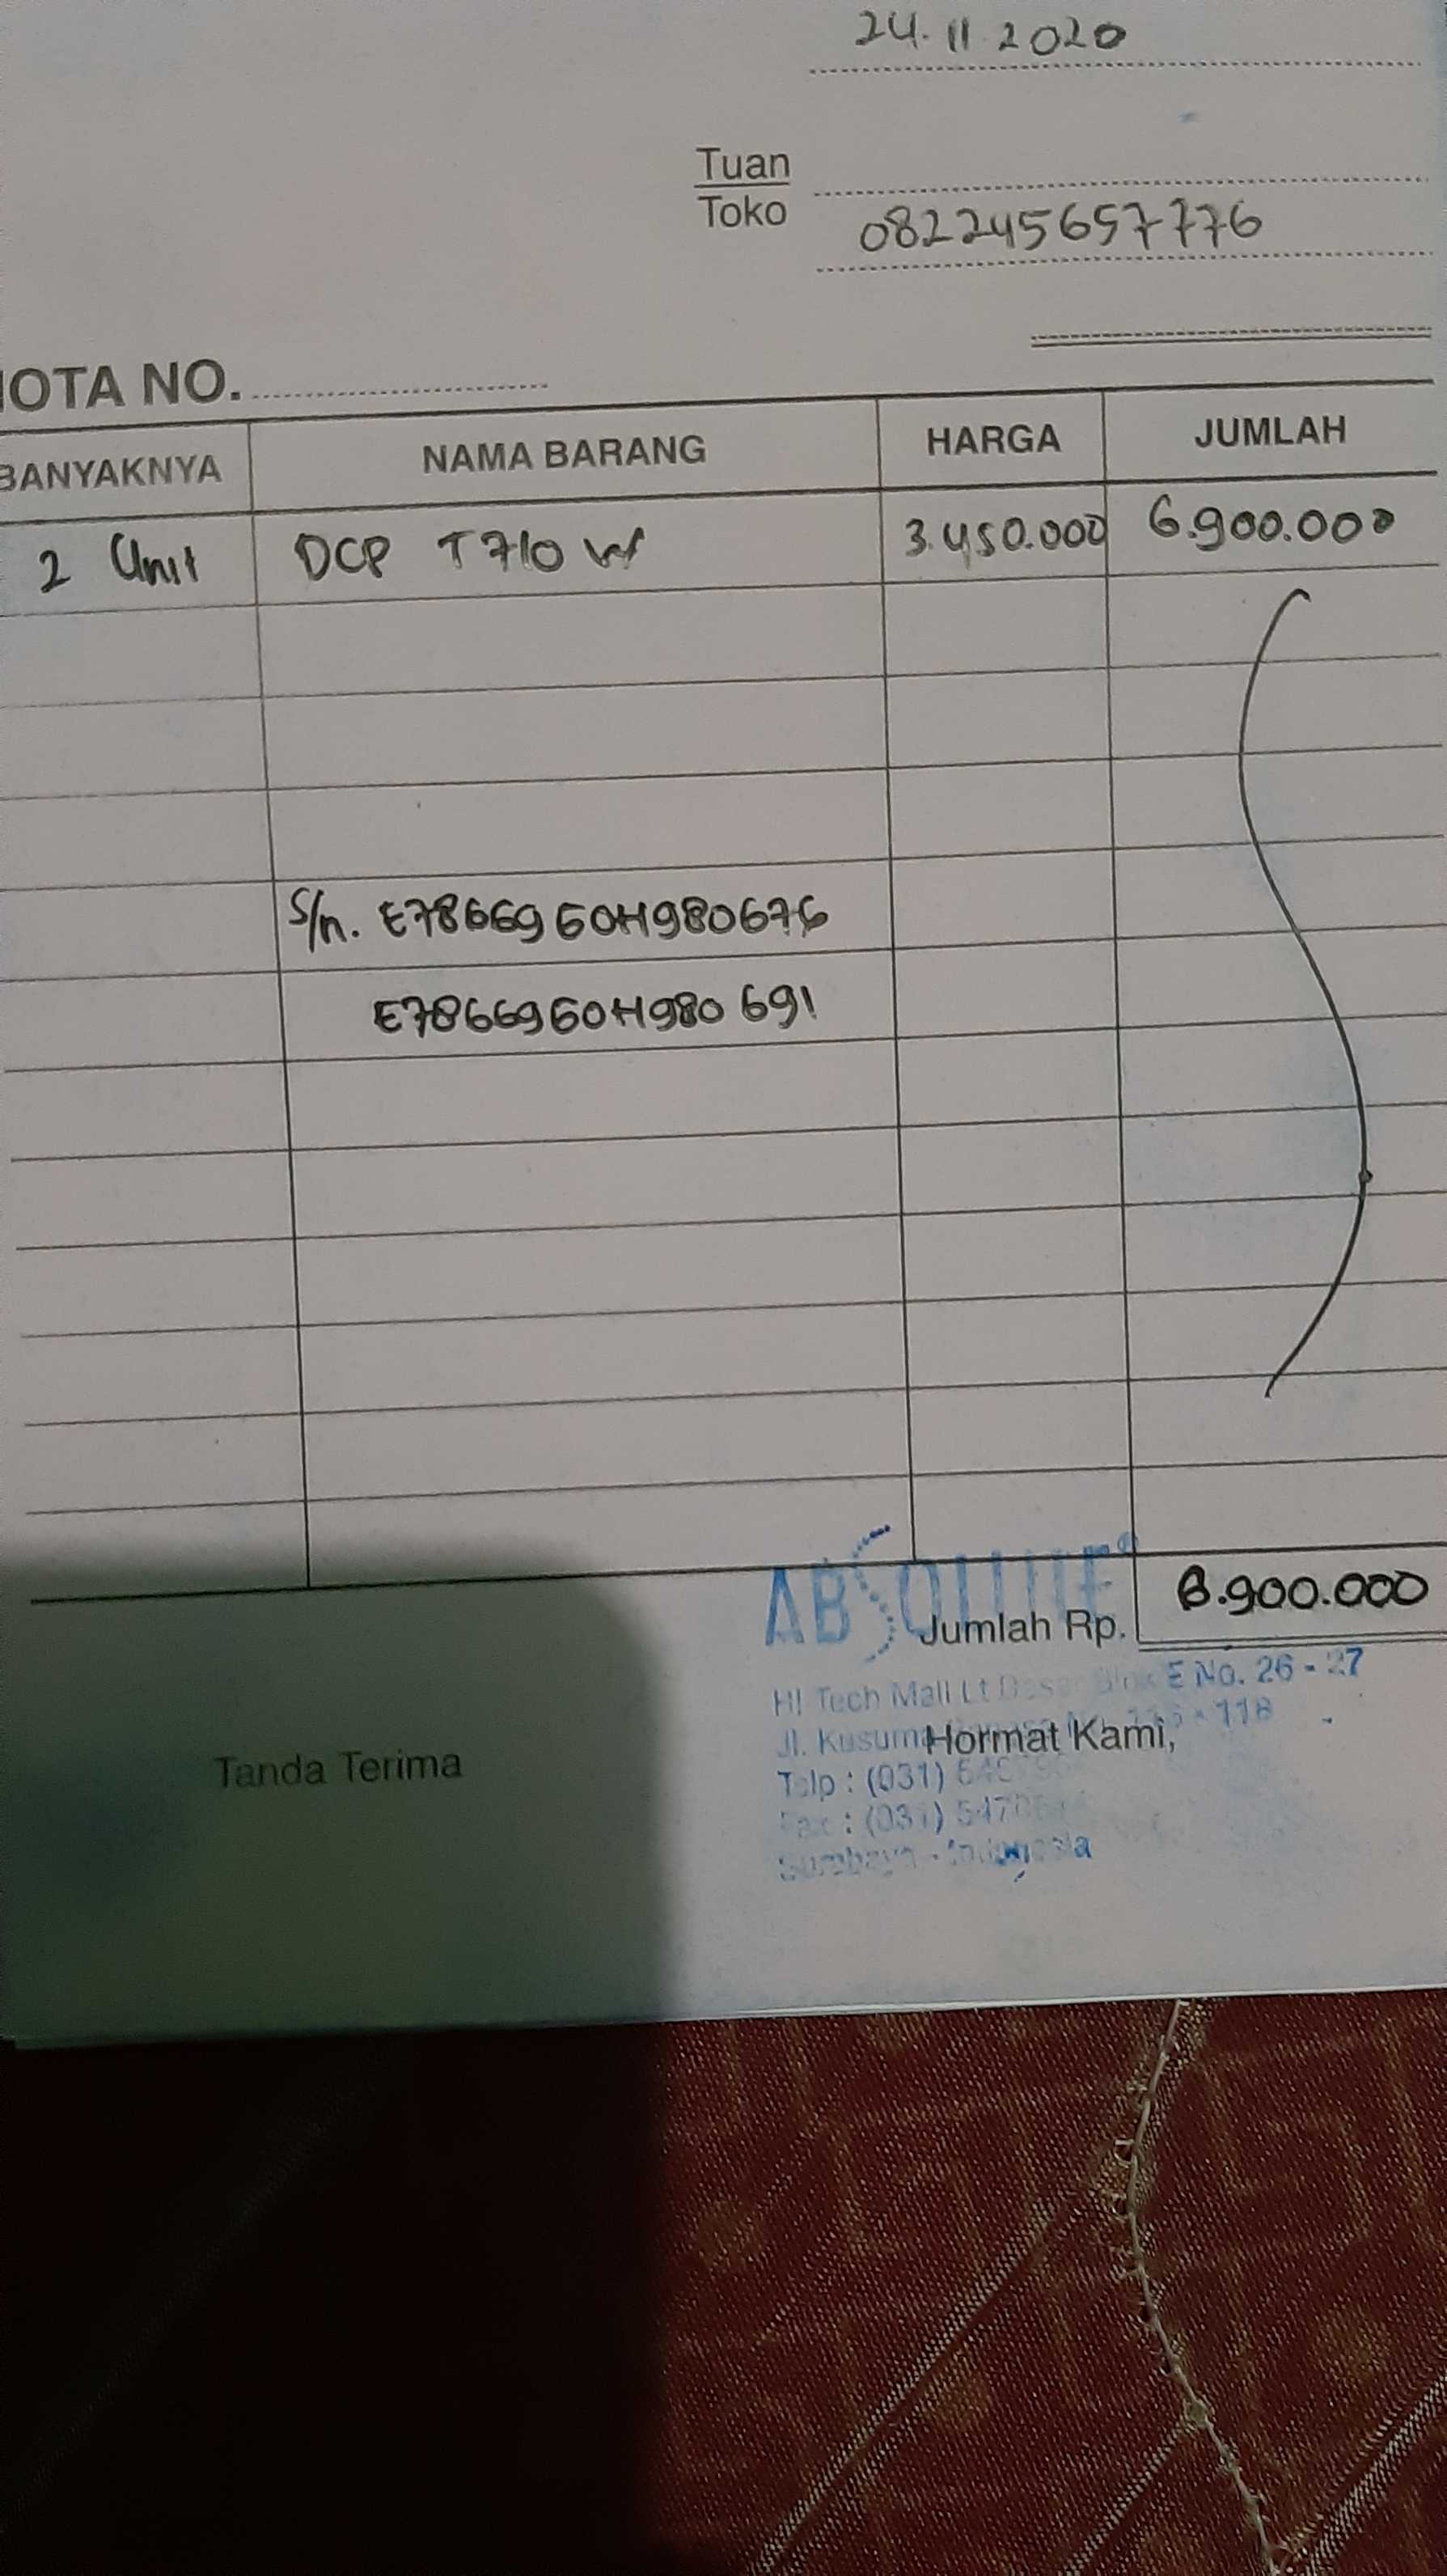 24.11 2020
Tuan
Toko
082245657776
NOTA NO.
BANYAKNYA NAMA BARANG HARGA JUMLAH
2 Unit DCP T710 W 3.450.000 6.900.000
S/n. E7866960H980676
E7866960H980 691
ABSOLUTE
Jumlah Rp. 6.900.000
HI Tech Mall Lt Dasar Blok E No. 26 - 27
Jl. Kusuma 116 - 118
Hormat Kami,
Tanda Terima
Telp : (031)
Fax : (031)
Surabaya - Indonesia